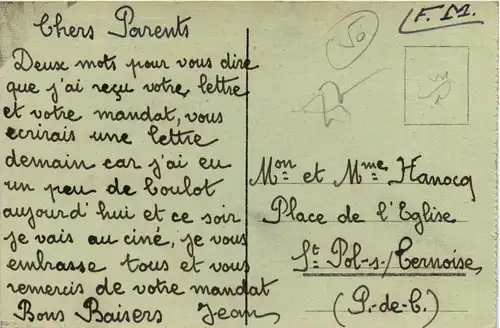 Chers Parents
Deux mots pour vous dire
que j'ai reçu votre lettre
et votre mandat, vous
ecrirais une lettre
demain car j'ai eu
un peu de boulot
aujourd'hui et ce soir
je vais au ciné, je vous
embrasse tous et vous
remercis de votre mandat
Bons Baisers Jean
50
F.M.
Mon et Mme Hanocq
Place de l'Eglise
St Pol-s-/Ternoise
(P.-de-C.)